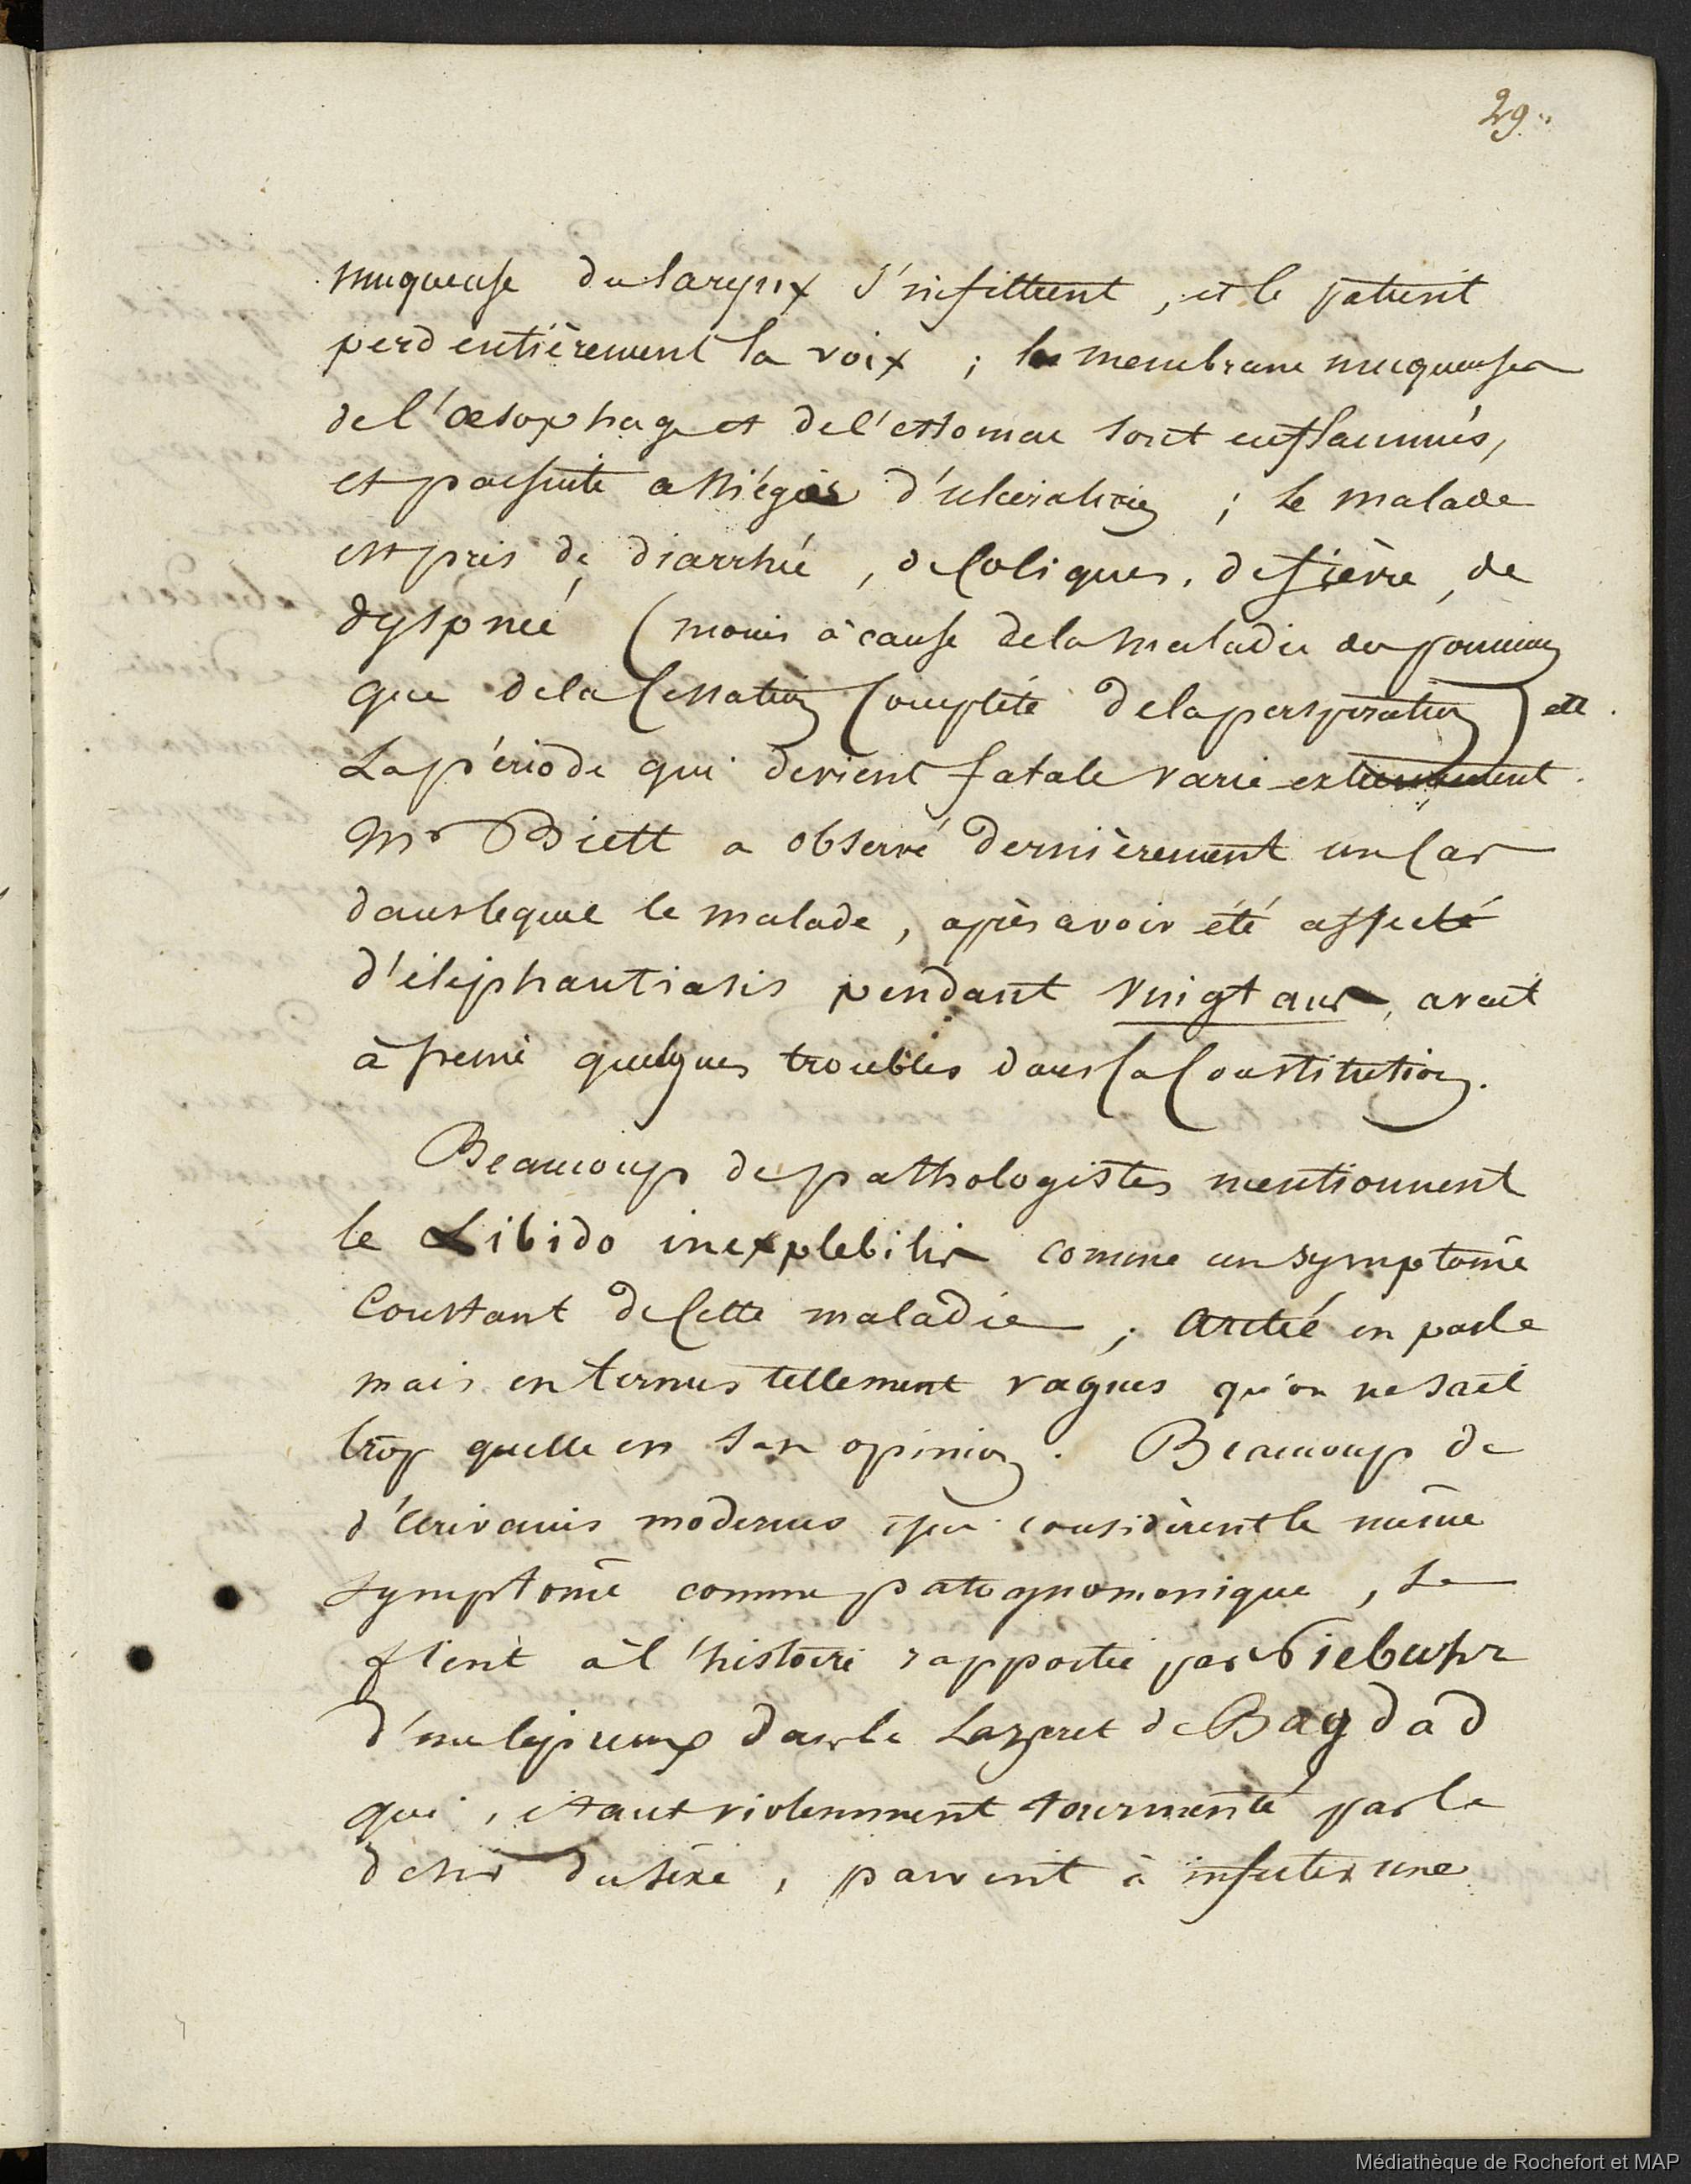 29.
muqueuse du larynx s'infiltrent, et le patient
perd entièrement la voix ; les membrane muqueuses
de l'œsophage et de l'estomac sont enflammés,
et par suite assiégées d'ulcération ; le malade
est pris de diarrhée, de coliques, de fièvre, de
dyspnée (moins à cause de la maladie du poumon
que de la cessation complète de la perspiration) etc.
La période qui devient fatale varie extrêmement.
Mr Biett a observé dernièrement un cas
dans lequel le malade, après avoir été affecté
d'éléphantiasis pendant vingt ans, avait
à peine quelques troubles dans sa constitution.
Beaucoup de pathologistes mentionnent
le Libido inexplebilis comme un symptôme
constant de cette maladie ; Arétée en parle
mais en termes tellement vagues qu'on ne sait
trop quelle en son opinion. Beaucoup de
d'écrivains modernes qui considèrent le même
symptôme comme patognomonique, se
fient à l'histoire rapportée par Niebuhr
d'un lépreux dans le Lazaret de Bagdad
qui, étant violemment tourmenté par le
desir du sexe, parvint à infecter une
Médiathèque de Rochefort et MAP